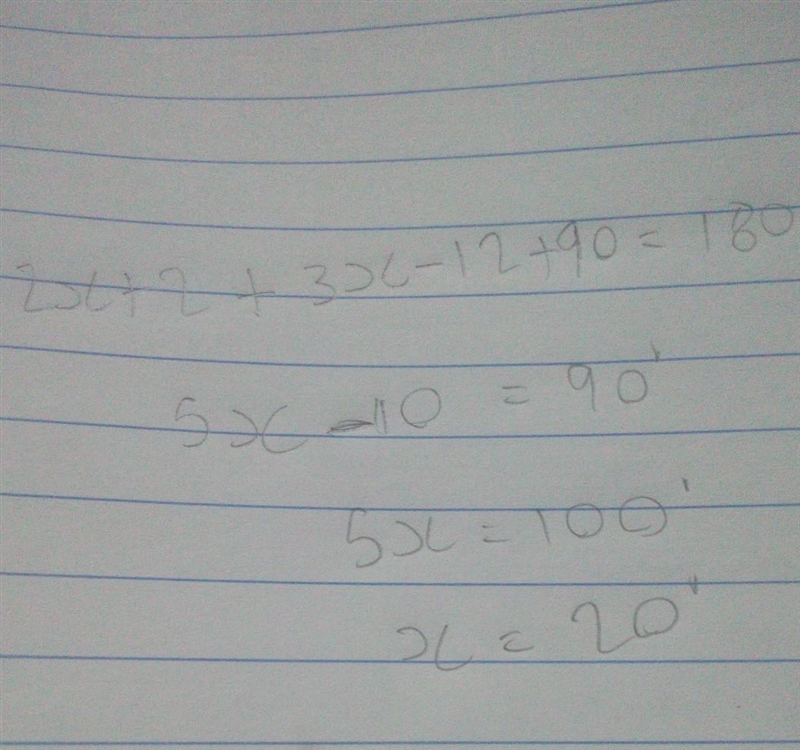 2x+2 + 3x-12+90 = 180
5x -10 = 90'
5x = 100'
x = 20'